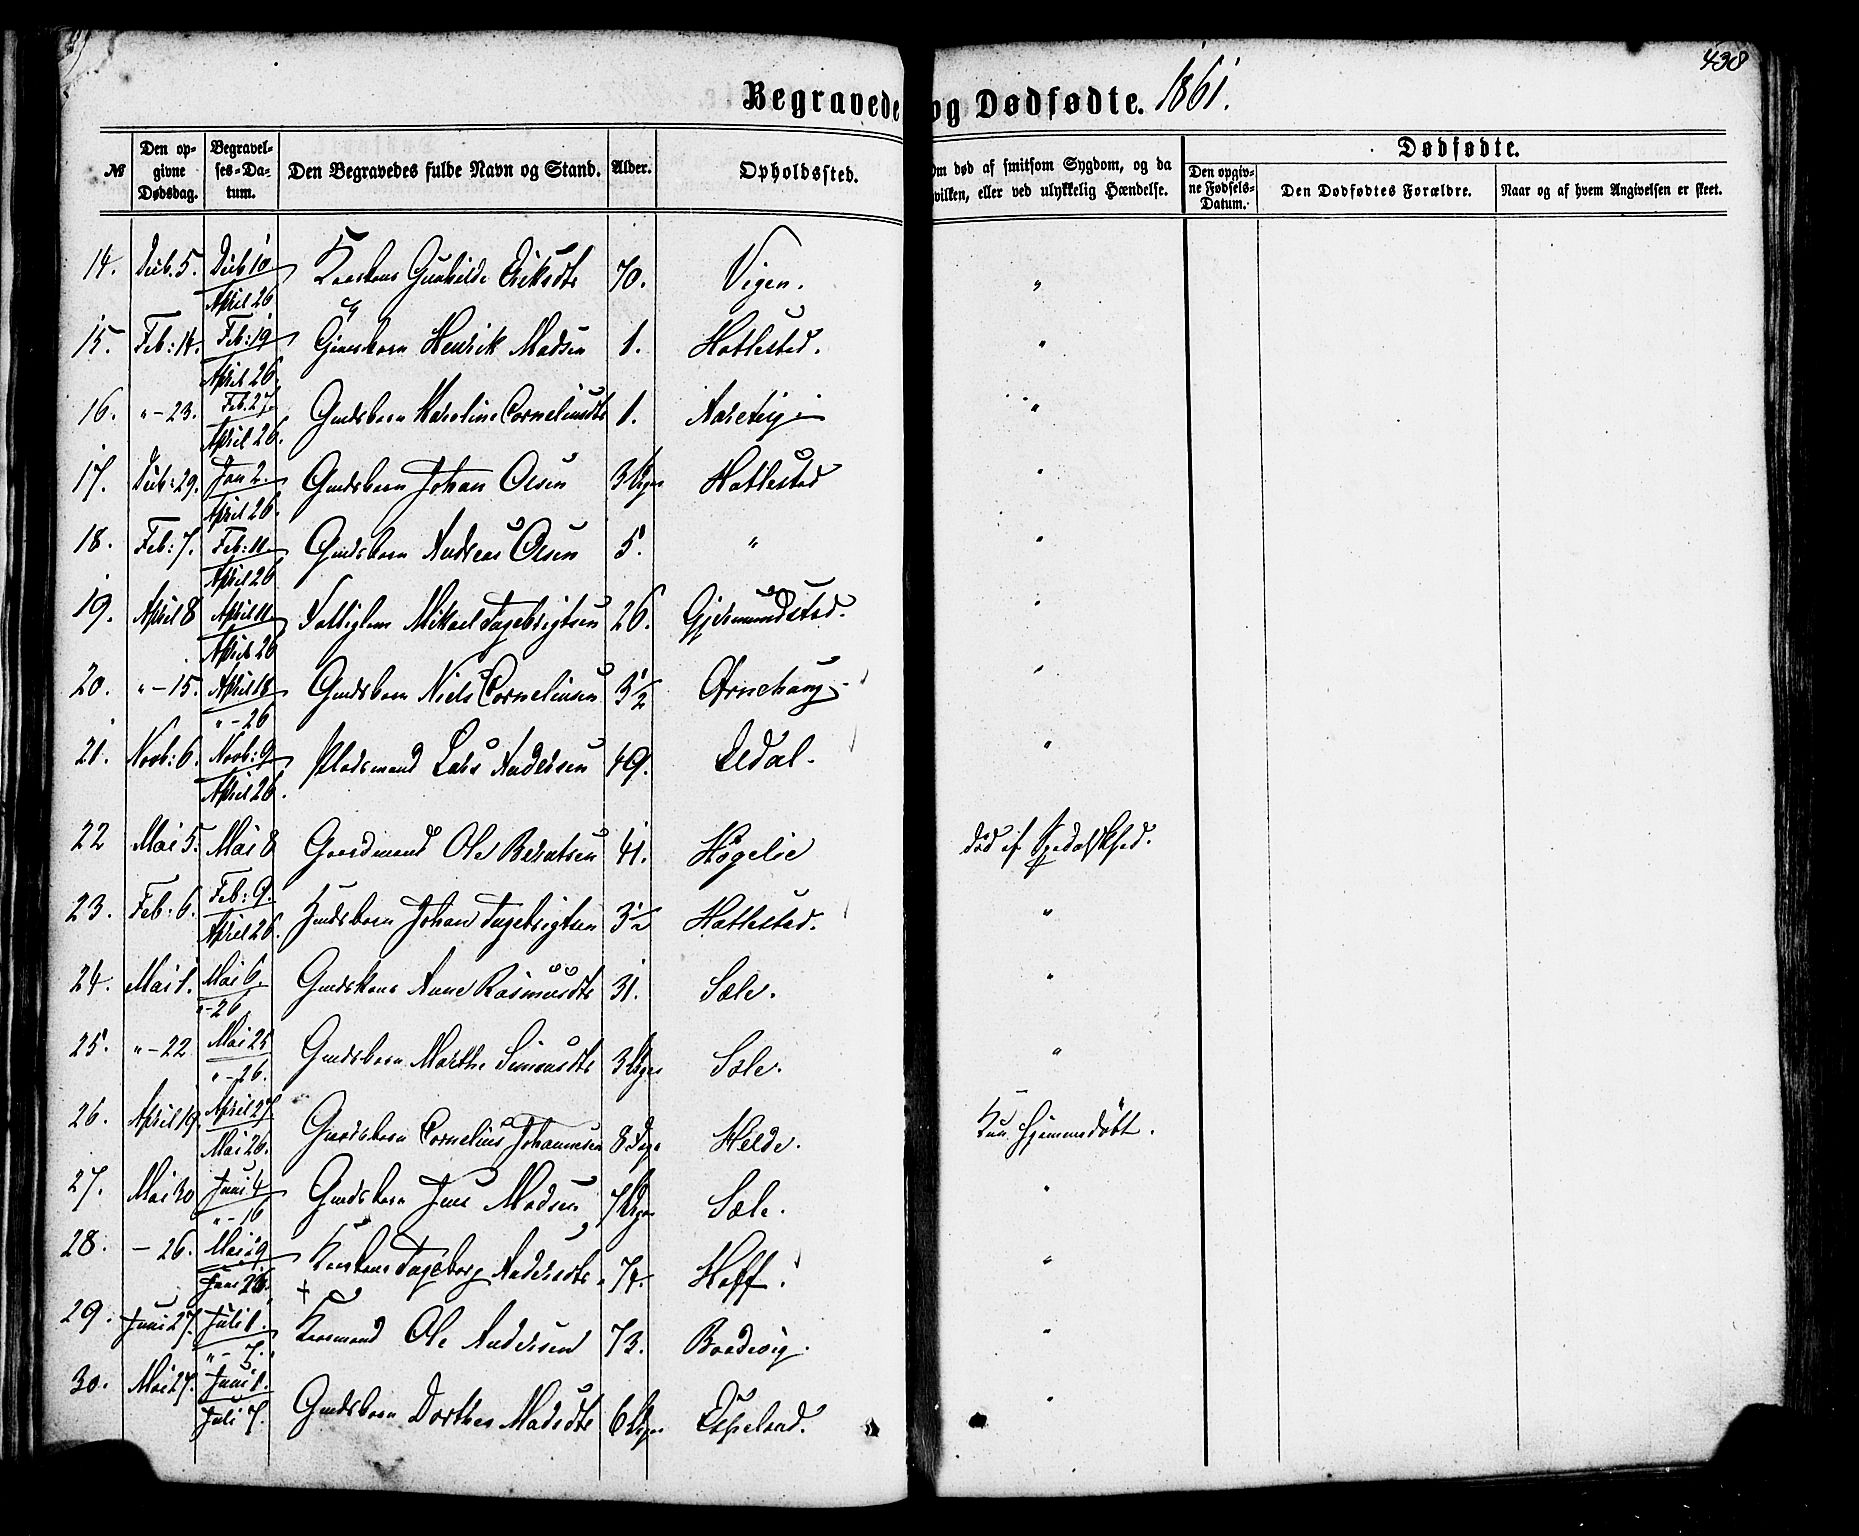 438
Begravede og Dødfødte. 1861.
№ Den opgivne Dødsdag. Begravelses-Datum. Den Begravedes fulde Navn og Stand. Alder. Opholdssted. Om død af smitsom Sygdom, og da hvilken, eller ved ulykkelig Hændelse. Dødfødte.
Den opgivne Fødsels-Datum. Den Dødfødtes Forældre. Naar og af hvem Angivelsen er skeet.
14. 5. 10 April 26 Gunhilde Eriksdtr 70. Vigen. "
15. Feb: 14. Feb: 19 April 26 Henrik Madsen 1. Hatlestad. "
16. "-23. Feb. 27 April 26. Gmdsbarn Karoline Corneliusdtr 1. "
17. 29. Jan 2. April 26. Gmdsbarn Johan Olsen 3 Uger Hatlestad "
18. Feb: 7. Feb: 11 April 26 Gmdsbarn Andreas Olsen 5. " "
19. April 8 April 11 April 26 Mikael Ingebrigtsen 26. Gjermundstad. "
20. "-15. April 18 "-26 Gmdsbarn Niels Corneliusen 3½ "
21. Novb: 6. Novb: 9 April 26. Pladsmand Lars Andersen 49. Eldal. "
22 Mai 5. Mai 8 Gaardmand Ole Berntsen 41. Høgelie død af Spedalskhed.
23. Feb: 6. Feb: 9. April 26. Johan Ingebrigtsen 3½ Hatlestad. "
24. Mai 1. Mai 6. "-26 Gmdskone Anne Rasmusdtr 31. Sæle. "
25. "-22 Mai 25 "-26. Gmdsbarn Marthe Simonsdtr 3 Uger Sæle. "
26. April 19. April 27 Mai 26. Gmdsbarn Cornelius Johannesen 8 Dage Helde. Kun hjemmedøbt.
27. Mai 30 Juni 4 "-16 Gmdsbarn Jens Madsen 7 Uger Sæle. "
28. -26. Mai 29 Juni 26. Ingeborg Andersdtr. 74. Hoff. "
29. Juni 27. Juli 1. "-7. Kaarmand Ole Andersen 73. "
30. Mai 27. Juni 1. Juli 7. Gmdsbarn Dorthea Madsdtr 6 Uger Espeland. "